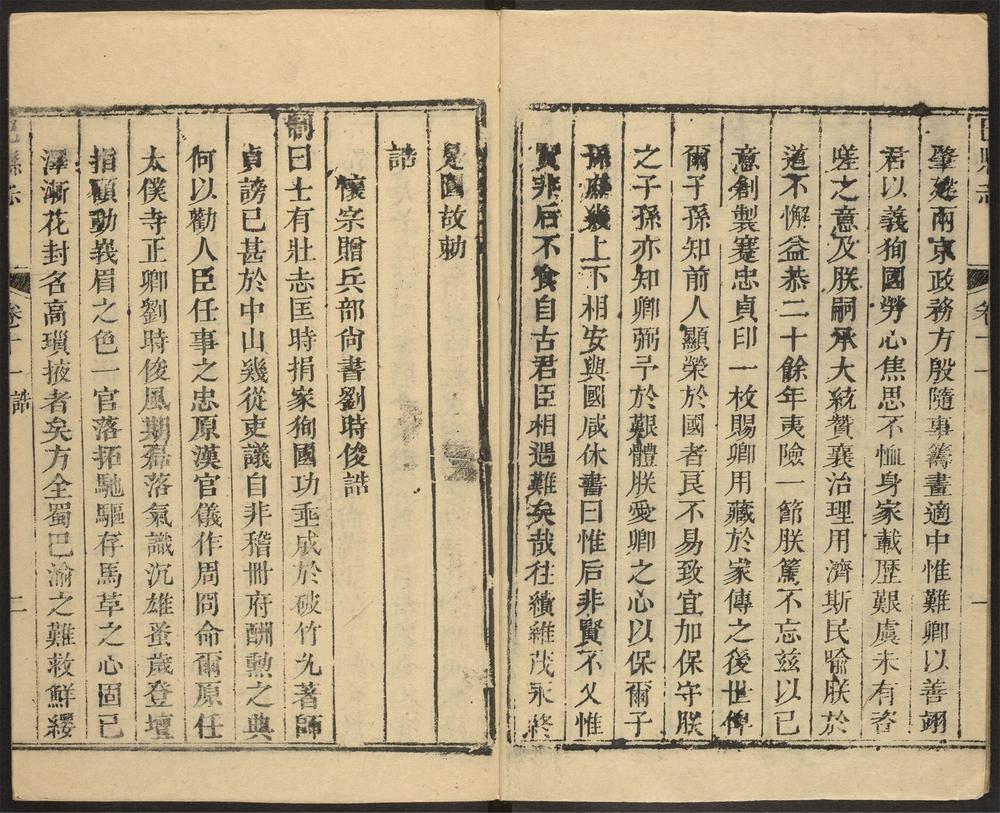 肇建兩京政務方殷隨事籌畫適中惟難卿以善翊
君以義狥國勞心焦思不恤身家載歷艱虞未有咨
嗟之意及朕嗣承大統贊襄治理用濟斯民喻朕於
道不懈益恭二十餘年夷險一節朕篤不忘茲以已
意創製蹇忠貞印一枚賜卿用藏於家傳之後世俾
爾子孫知前人顯榮於國者艮不易致宜加保守朕
之子孫亦知卿弼予於艱體朕愛卿之心以保爾子
孫庶幾上下相安與國咸休書曰惟后非賢不乂惟
賢非后不食自古君臣相遇難矣哉往績維茂永終
是圖故勅
誥
懷宗贈兵部尚書劉時俊誥
制曰士有壯志匡時捐家狥國功垂成於破竹尤著師
貞謗已甚於中山幾從吏議自非稽冊府酬勳之典
何以勸人臣任事之忠原漢官儀作周冏命爾原任
太僕寺正卿劉時俊風期磊落氣識沉雄蚤歲登壇
指顧動義眉之色一官落拓馳驅存馬革之心固已
澤漸花封名高瑣掖者矣方全蜀巴渝之難救鮮纓
卷十一 誥 二